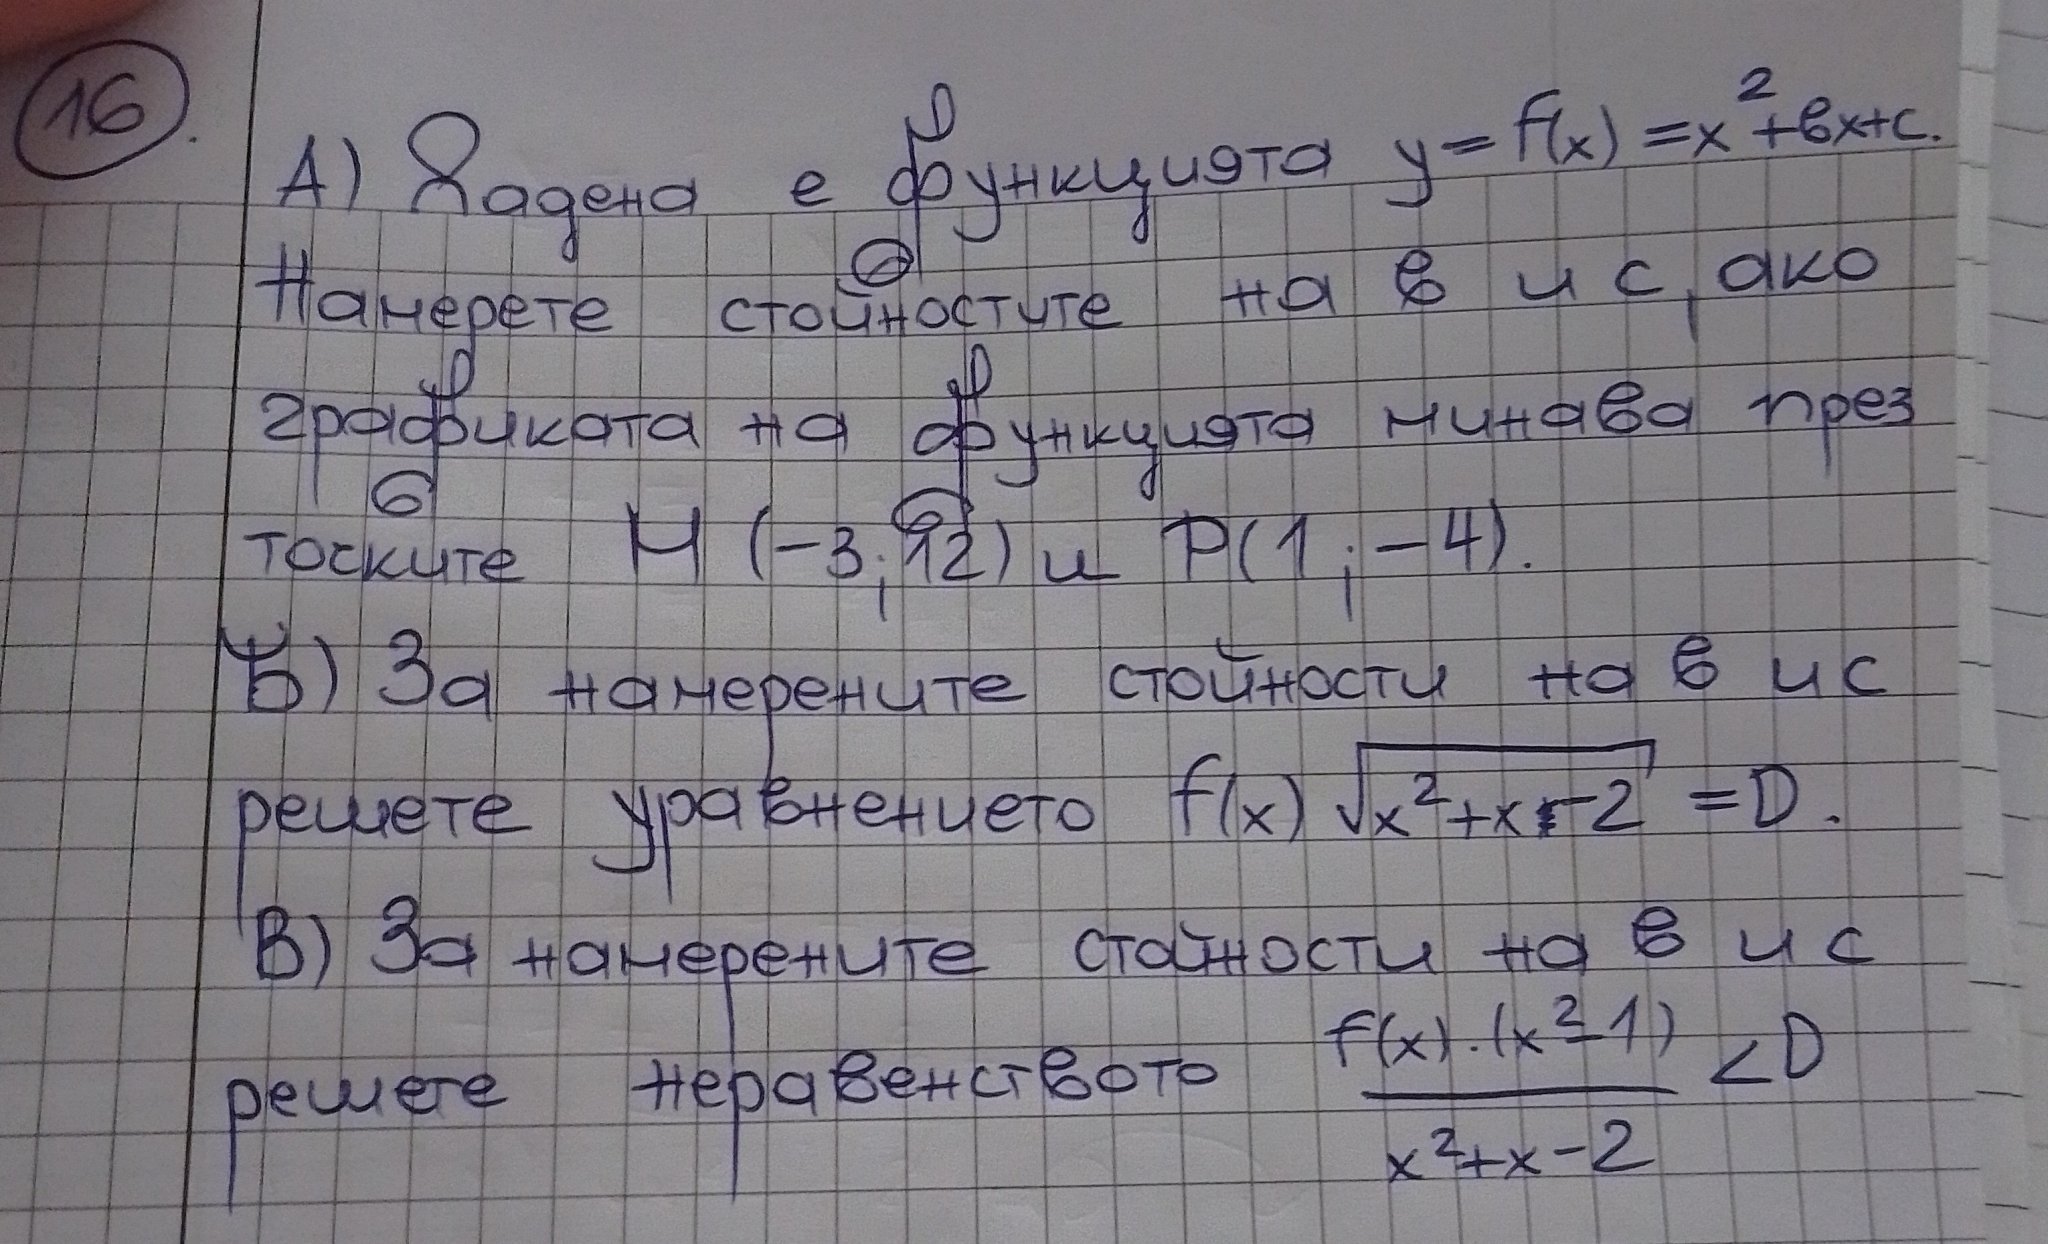 16.
А) Задена е функцията y = f(x) = x²+вx+c.
Намерете стойностите на в и с, ако
графиката на функцията минава през
тоските М (-3; 12) и P(1; -4).
Б) За намерените стойности на в и с
решете уравнението f(x) √x²+x-2 = 0.
В) За намерените стойности на в и с
решете неравенството f(x).(x²-1) / x²+x-2 < 0